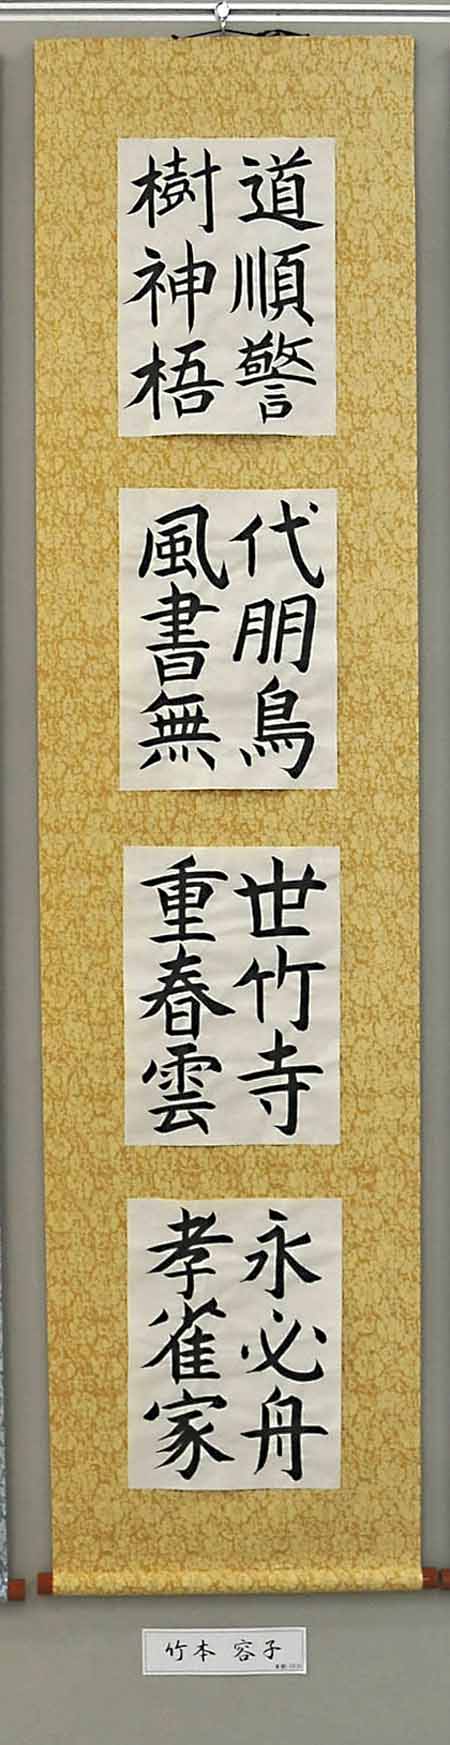 道順警
樹神梧
代朋鳥
風書無
世竹寺
重春雲
永必舟
孝雀家
竹本 容子